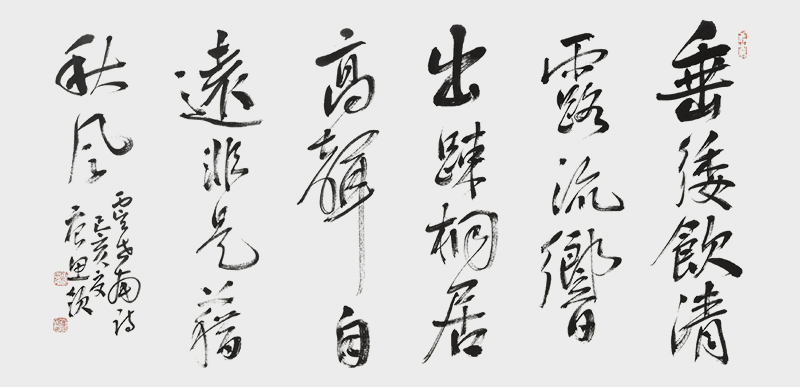 垂緌飲清
露流響
出疎桐居
高聲自
遠非是藉
秋風
虞世南詩
己亥夏